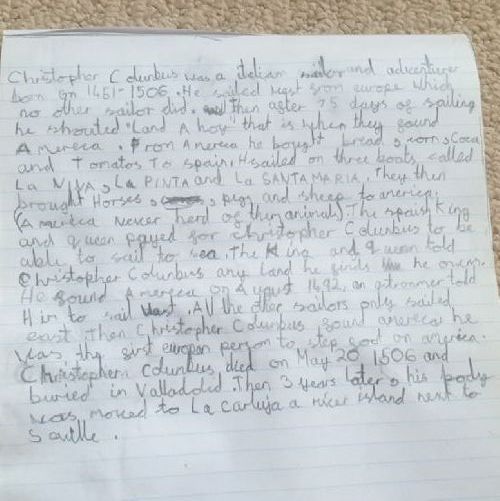 Christopher Columbus was a itelian sailor and adventurer
born on 1451-1506. He sailed West from europe which
no other sailor did. and then after 75 days of sailing
he shouted "Land A hoy" that is when they found
Amereca. From America he bought bread, corn, Coca
and Tomatos To spain. H sailed on three boats called
La NINA, La PINTA and La SANTAMARIA. They then
brought Horses, , pigs and sheep to america.
(America Never herd of them animals) The spaish King
and queen payed for Christopher Columbus to be
able to sail to sea. The King and queen told
Christopher Columbus any land he finds he owens.
He found Amereca on August 1492, an astronmer told
Him to sail West. All the other sailors only sailed
east. Then Christopher Columbus found amereca he
was the first europan person to step foot on america.
Christopher Columbus died on May 20 1506 and
buried in Valladolid. Then 3 years later, his body
was moved to La Cartuja a river island next to
Saville.